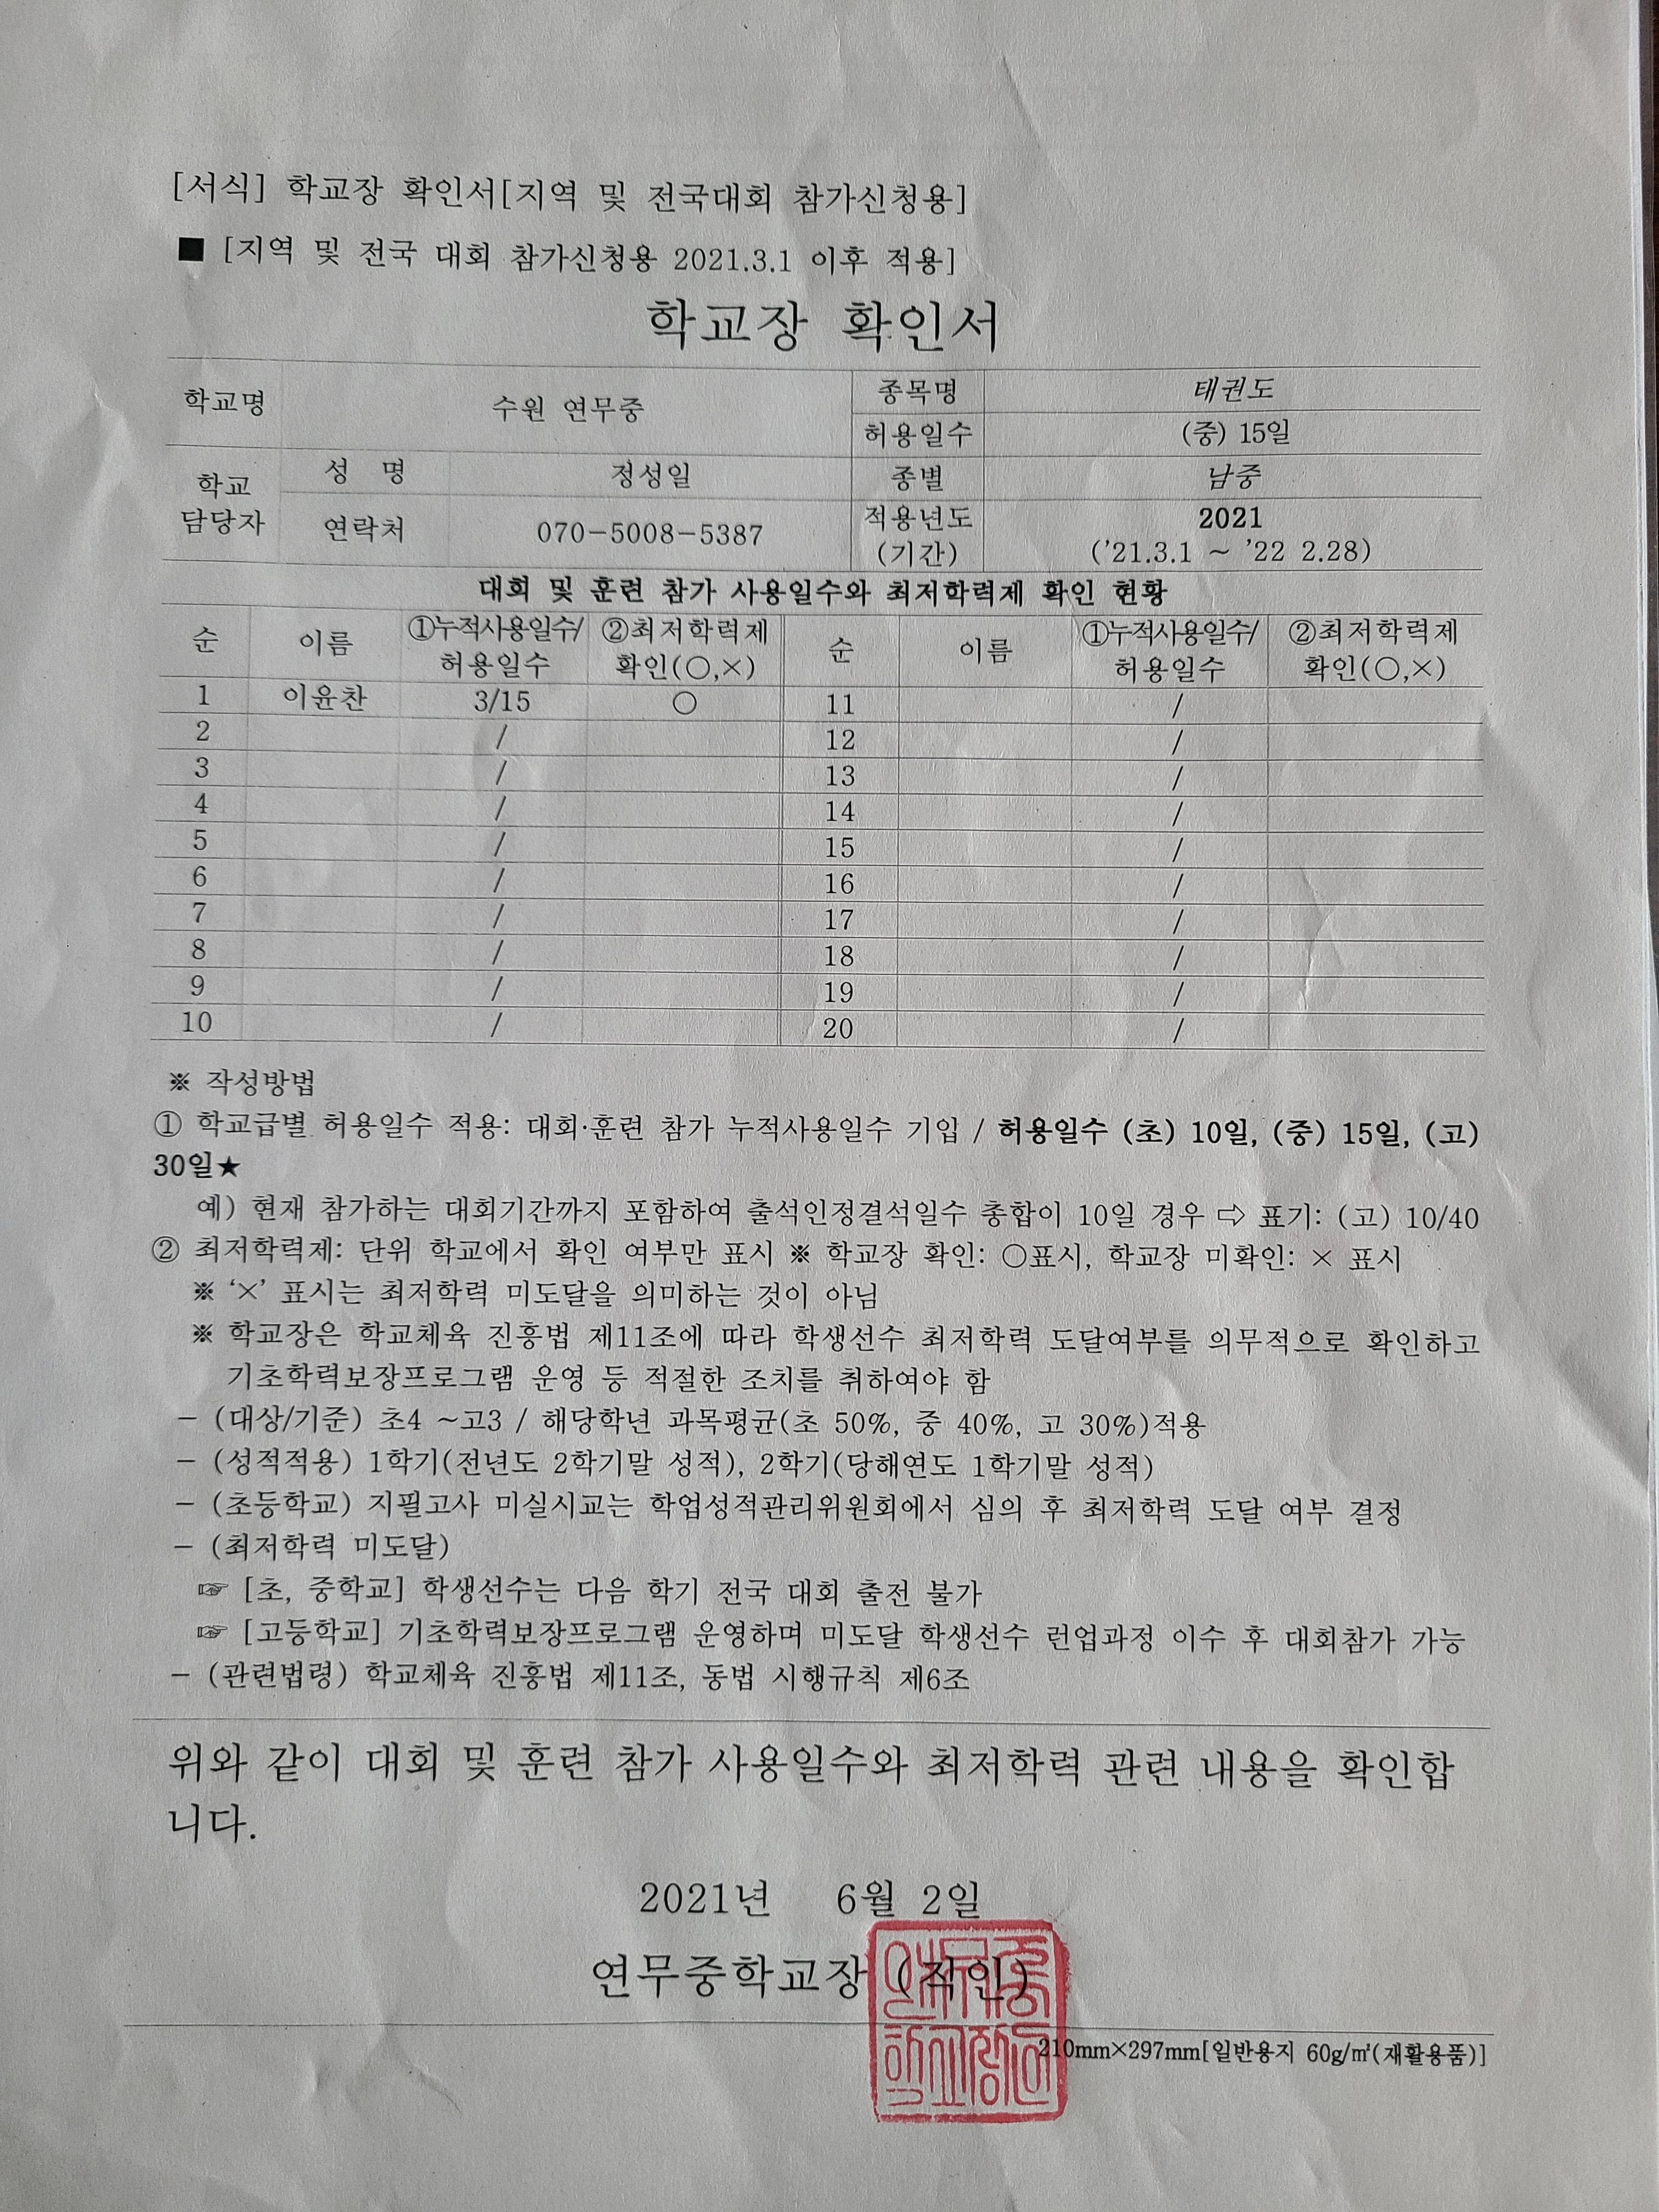 [서식] 학교장 확인서[지역 및 전국대회 참가신청용]
■ [지역 및 전국 대회 참가신청용 2021.3.1 이후 적용]
학교장 확인서
학교명 수원 연무중 종목명 태권도
허용일수 (중) 15일
학교 담당자 성 명 정성일 종별 남중
연락처 070-5008-5387 적용년도 (기간) 2021 ('21.3.1 ~ '22 2.28)
대회 및 훈련 참가 사용일수와 최저학력제 확인 현황
순 이름 ①누적사용일수/허용일수 ②최저학력제 확인(○,×) 순 이름 ①누적사용일수/허용일수 ②최저학력제 확인(○,×)
1 이윤찬 3/15 ○ 11 /
2 / 12 /
3 / 13 /
4 / 14 /
5 / 15 /
6 / 16 /
7 / 17 /
8 / 18 /
9 / 19 /
10 / 20 /
※ 작성방법
① 학교급별 허용일수 적용: 대회·훈련 참가 누적사용일수 기입 / 허용일수 (초) 10일, (중) 15일, (고)
30일★
예) 현재 참가하는 대회기간까지 포함하여 출석인정결석일수 총합이 10일 경우 ⇨ 표기: (고) 10/40
② 최저학력제: 단위 학교에서 확인 여부만 표시 ※ 학교장 확인: ○표시, 학교장 미확인: × 표시
※ '×' 표시는 최저학력 미도달을 의미하는 것이 아님
※ 학교장은 학교체육 진흥법 제11조에 따라 학생선수 최저학력 도달여부를 의무적으로 확인하고
기초학력보장프로그램 운영 등 적절한 조치를 취하여야 함
- (대상/기준) 초4 ~고3 / 해당학년 과목평균(초 50%, 중 40%, 고 30%)적용
- (성적적용) 1학기(전년도 2학기말 성적), 2학기(당해연도 1학기말 성적)
- (초등학교) 지필고사 미실시교는 학업성적관리위원회에서 심의 후 최저학력 도달 여부 결정
- (최저학력 미도달)
☞ [초, 중학교] 학생선수는 다음 학기 전국 대회 출전 불가
☞ [고등학교] 기초학력보장프로그램 운영하며 미도달 학생선수 런업과정 이수 후 대회참가 가능
- (관련법령) 학교체육 진흥법 제11조, 동법 시행규칙 제6조
위와 같이 대회 및 훈련 참가 사용일수와 최저학력 관련 내용을 확인합
니다.
2021년 6월 2일
연무중학교장 (직인)
210mm×297mm[일반용지 60g/㎡(재활용품)]